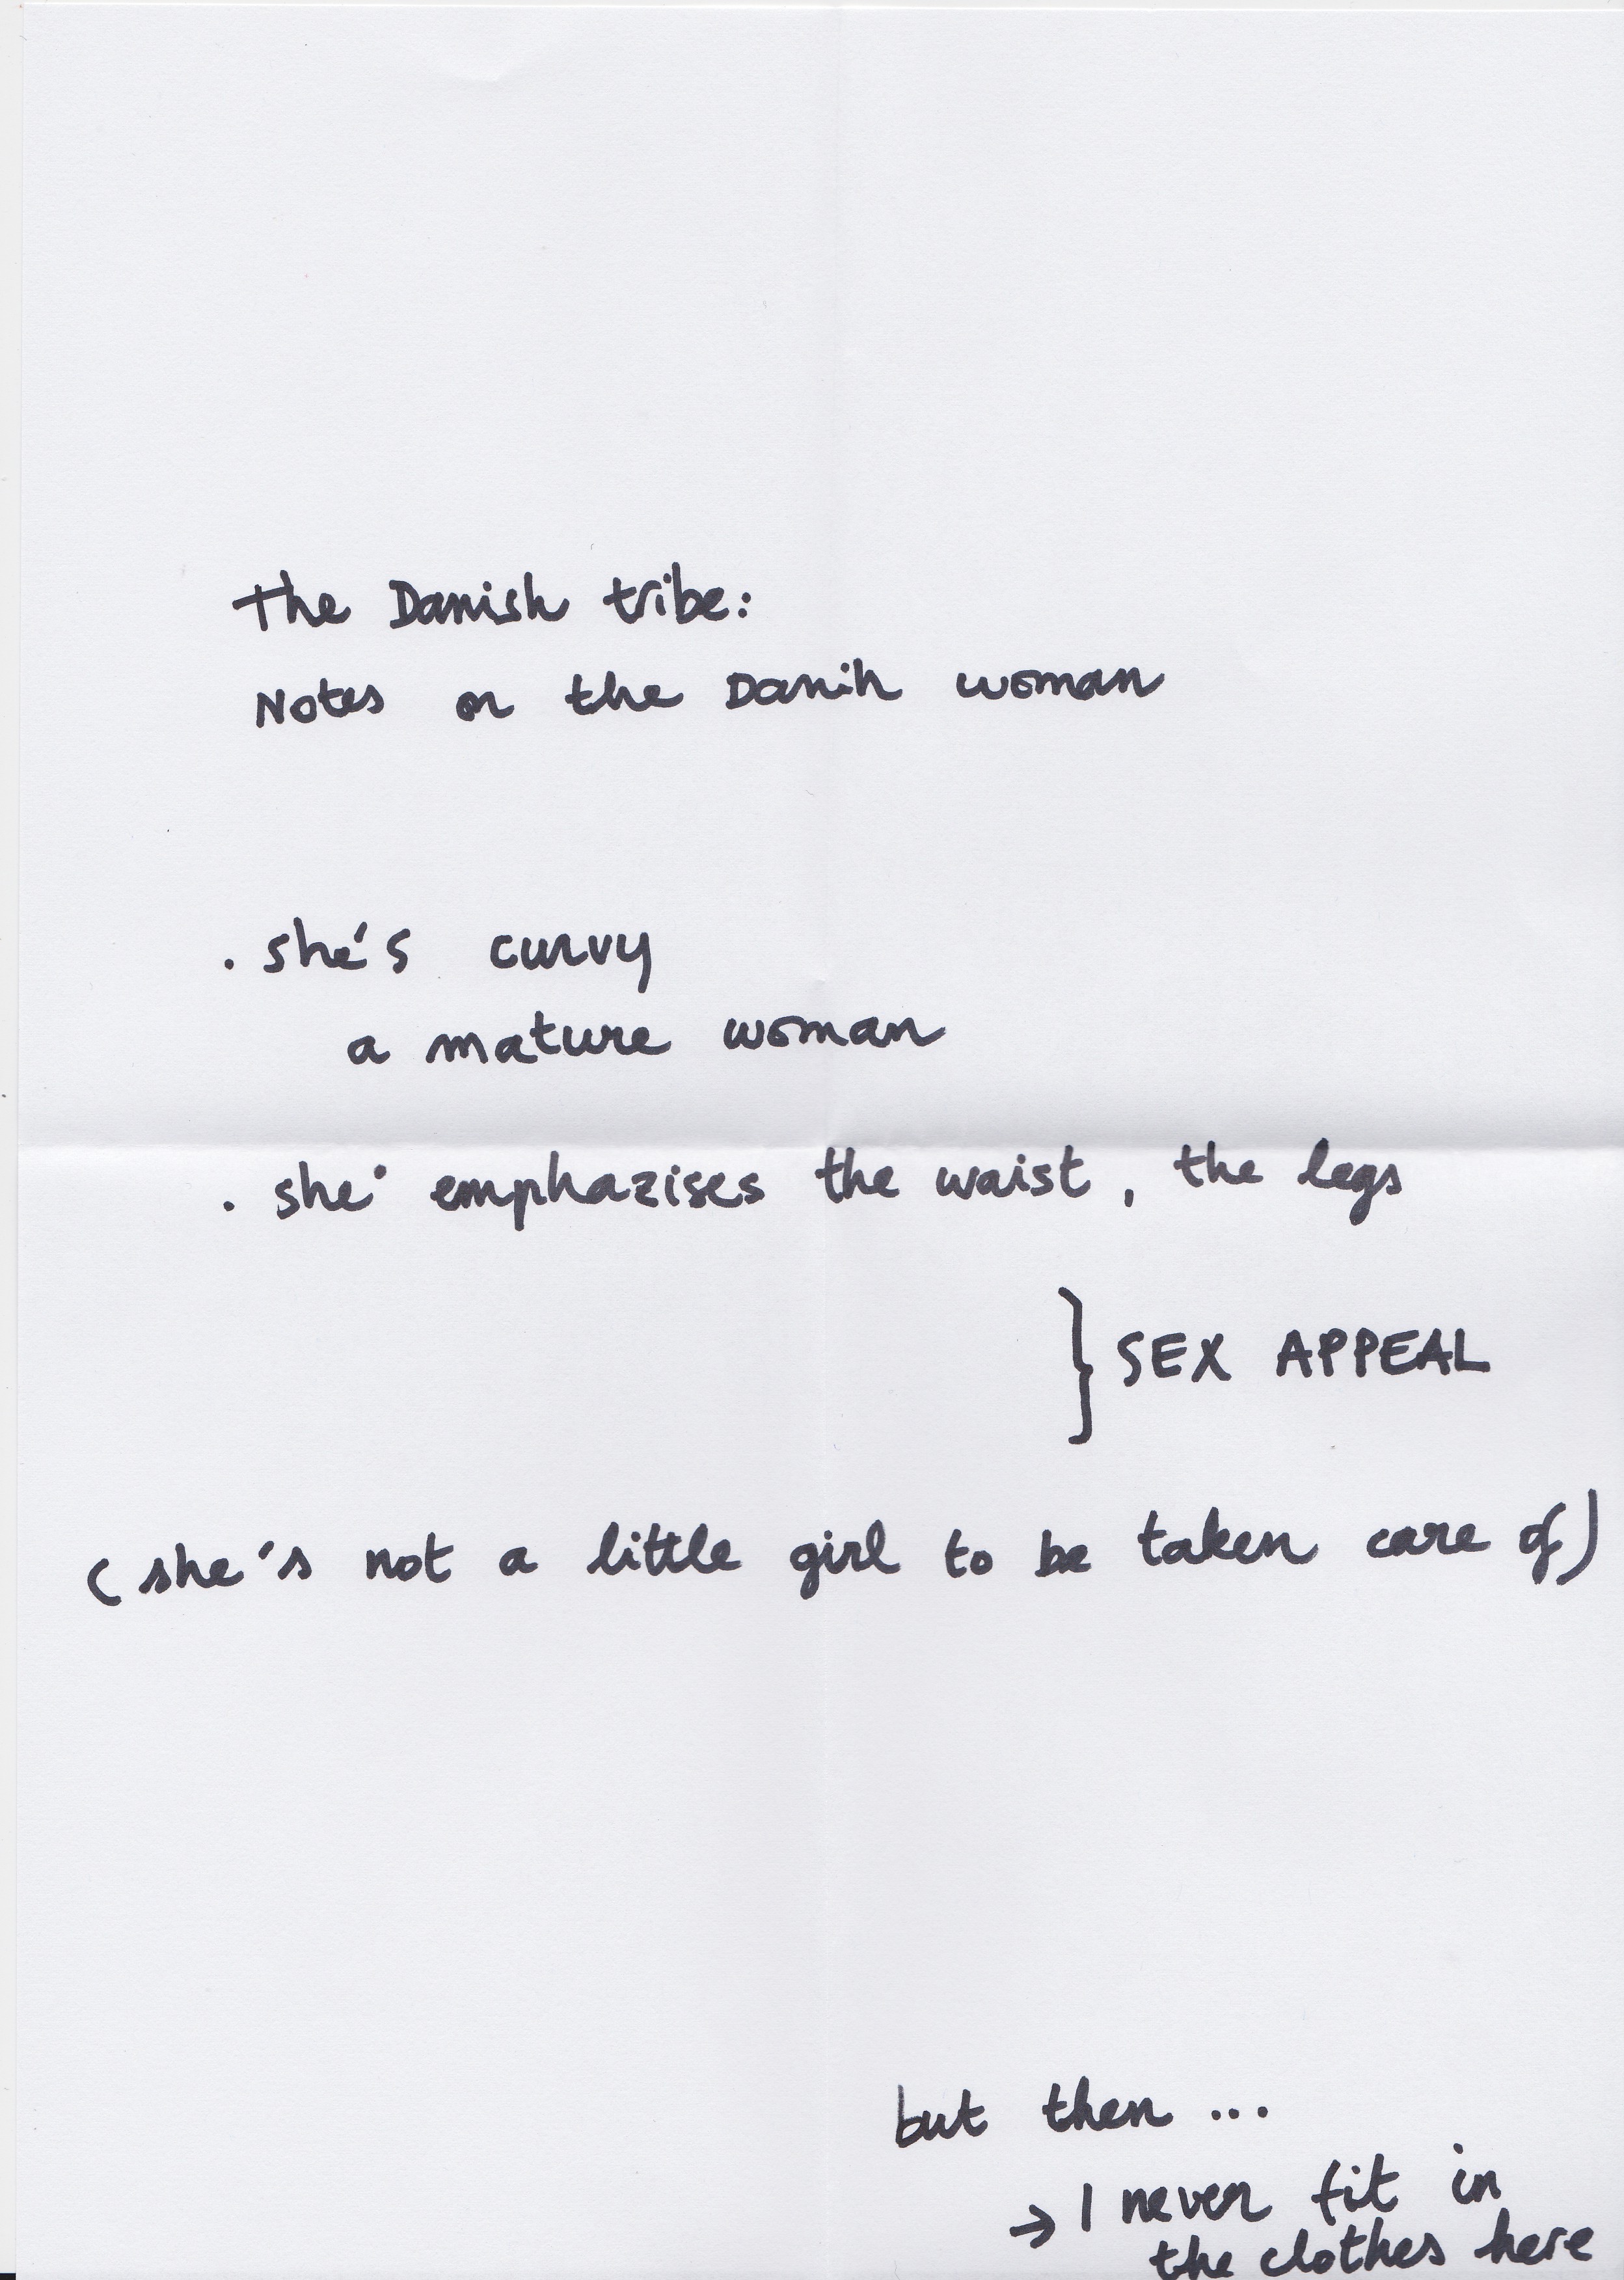 The Danish tribe:
Notes on the Danih woman
. she's curvy
a mature woman
. she emphazises the waist, the legs
} SEX APPEAL
(she's not a little girl to be taken care of)
but then ...
→ I never fit in
the clothes here